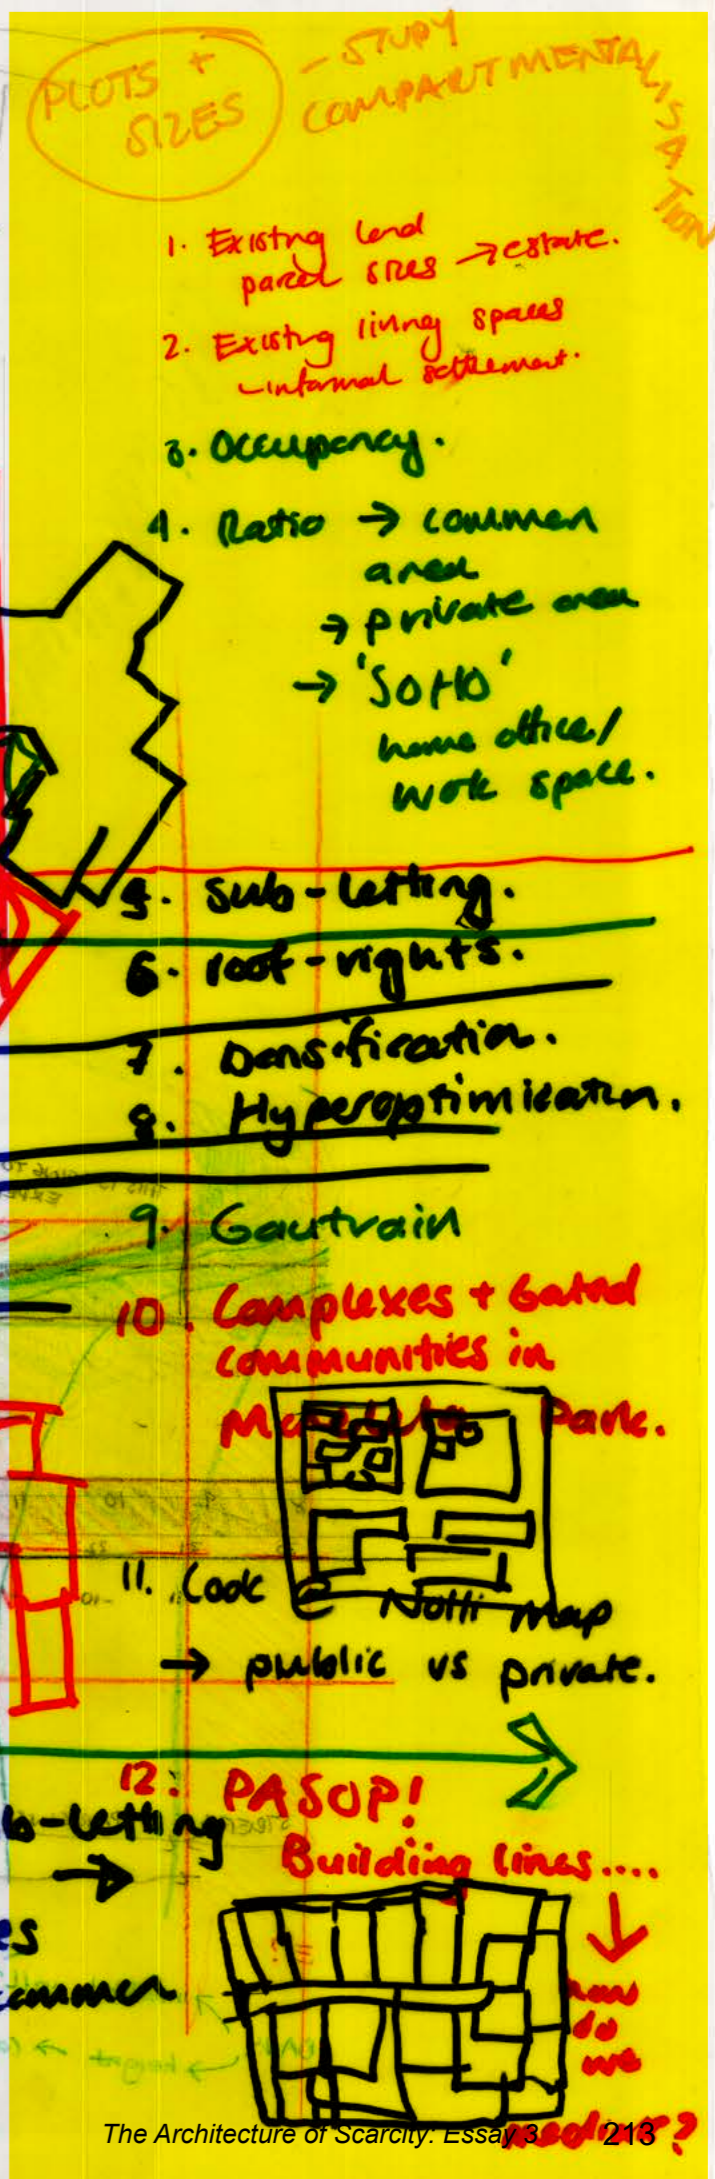 PLOTS +
SIZES
- STUDY
COMPARTMENTALISATION
1. Existing land
parcel sizes → estate.
2. Existing living spaces
- informal settlement.
3. Occupancy.
4. Ratio → common
area
→ private area
→ 'SOHO'
home office/
work space.
5. Sub-letting.
6. roof-rights.
7. Densification.
8. Hyperoptimisation.
9. Gautrain
10. Complexes + Gated
communities in
Park.
11. Look @ Nolli Map
→ public vs private.
12. PASOP!
b-letting
→
Building lines....
es
common
how
do
we
The Architecture of Scarcity: Essay 3 213